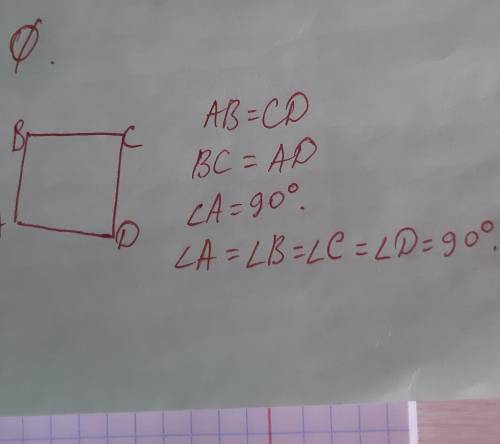 Ø.
B C
D
AB = CD
BC = AD
∠A = 90°.
∠A = ∠B = ∠C = ∠D = 90°.